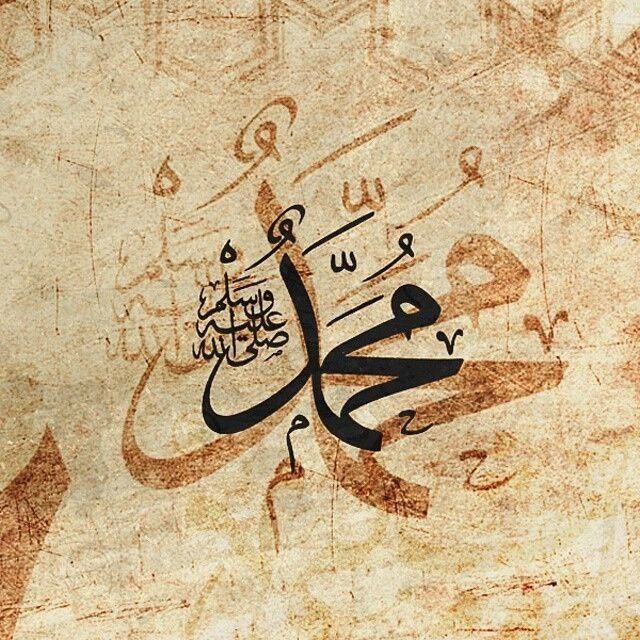 مُحَمَّدٌ
صلى الله
عليه
وسلم